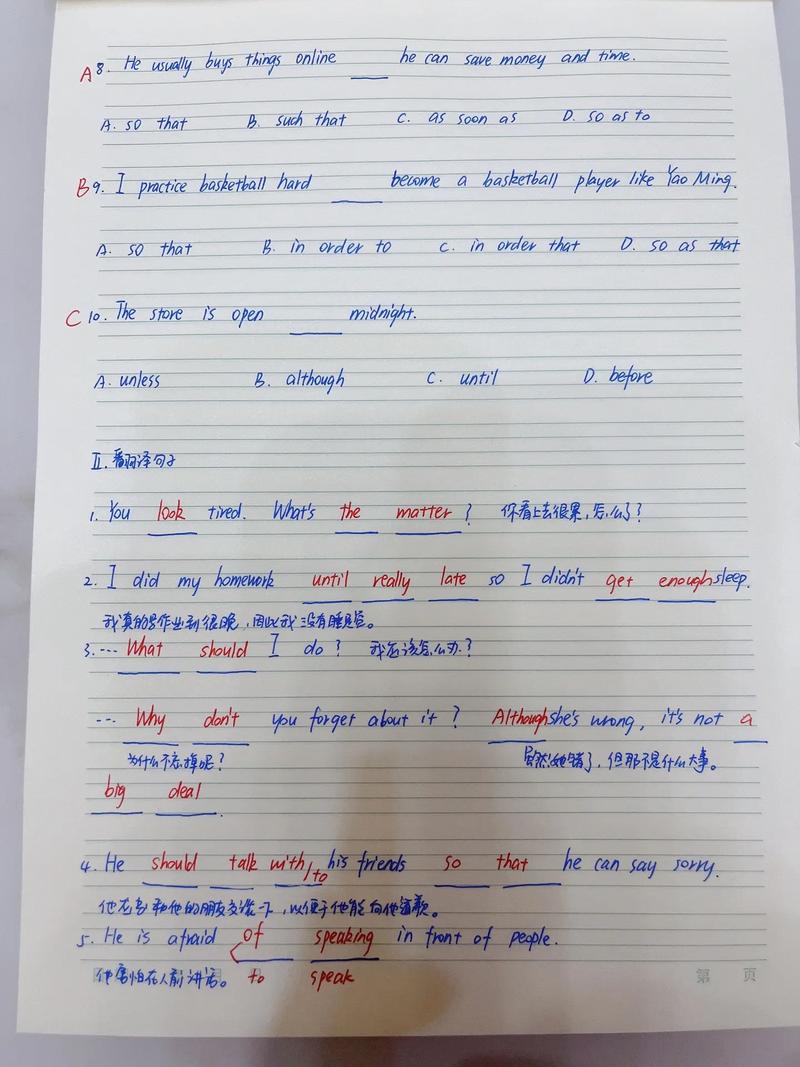 A 8. He usually buys things online ____ he can save money and time.
A. so that B. such that C. as soon as D. so as to
B 9. I practice basketball hard ____ become a basketball player like Yao Ming.
A. so that B. in order to C. in order that D. so as that
C 10. The store is open ____ midnight.
A. unless B. although C. until D. before
II. 翻译句子
1. You look tired. What's the matter? 你看上去很累,怎么了?
2. I did my homework until really late so I didn't get enough sleep.
我真的写作业到很晚,因此我没有睡
3. --- What should I do? 我应该怎么办?
--- Why don't you forget about it? Although she's wrong, it's not a
为什么不忘掉呢? 虽然她错了,但那不是什么大事。
big deal.
4. He should talk with/to his friends so that he can say sorry.
他应该和他的朋友交谈一下,以便于他能向他道歉。
5. He is afraid of speaking in front of people.
他害怕在人前讲话。 to speak
第 页